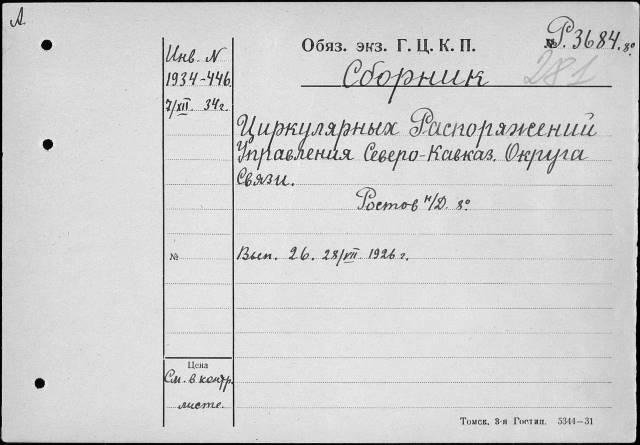 А.
Обяз. экз. Г. Ц. К. П.
№ Р. 3684. 8°
281
Инв. N
1934-446.
7/XII 34 г.
Сборник
Циркулярных Распоряжений
Управления Северо-Кавказ. Округа
Связи.
Ростов н/Д. 8°
№
Вып. 26. 28/VII 1926 г.
Цена
См. в контр.
листе.
Томск, 3-я Гостип. 5344—31